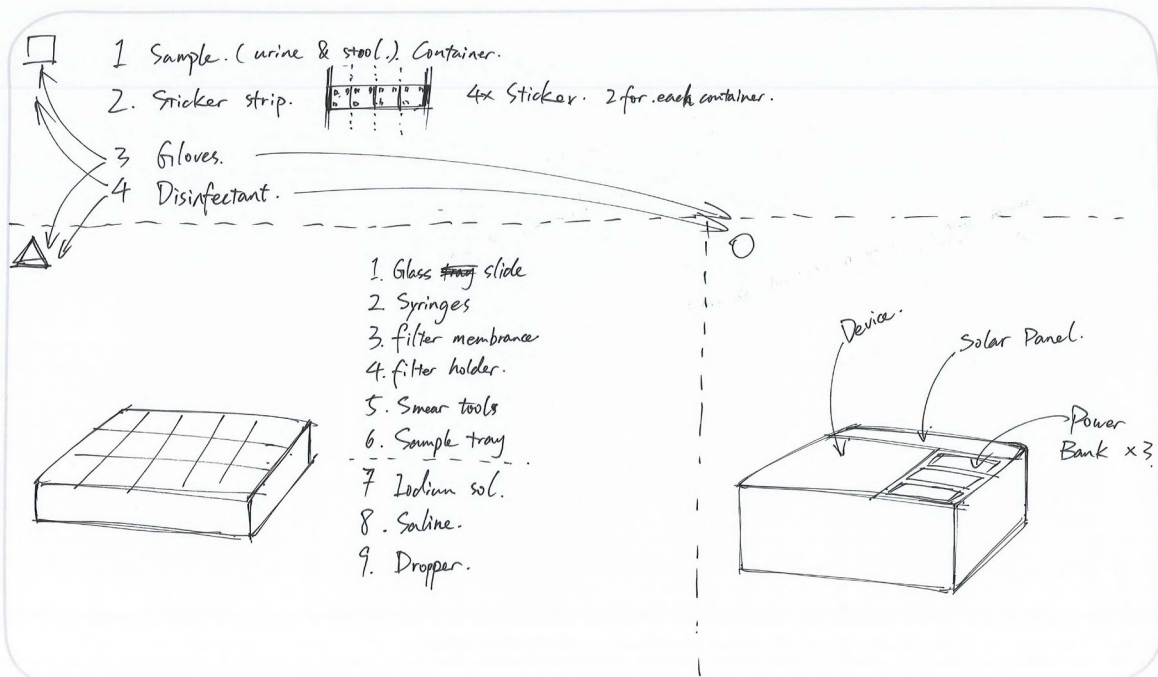 1 Sample. (urine & stool.). Container.
2. Sticker strip. 4x Sticker. 2 for each container.
3 Gloves.
4 Disinfectant.
1. Glass tray slide
2 Syringes
3. filter membrance
4. filter holder.
5. Smear tools
6. Sample tray
7 Iodium sol.
8. Saline.
9. Dropper.
Device.
Solar Panel.
Power
Bank x3